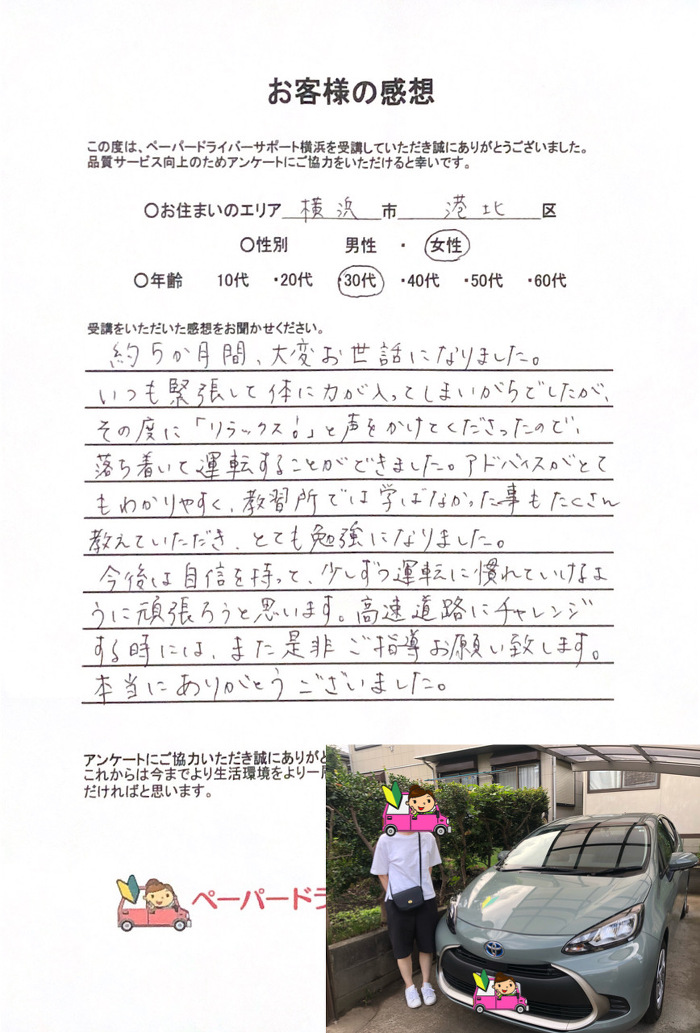 お客様の感想
この度は、ペーパードライバーサポート横浜を受講していただき誠にありがとうございました。
品質サービス向上のためアンケートにご協力をいただけると幸いです。
〇お住まいのエリア 横浜 市 港北 区
〇性別 男性 ・ 女性
〇年齢 10代 ・20代 ・30代 ・40代 ・50代 ・60代
受講をいただいた感想をお聞かせください。
約5か月間、大変お世話になりました。
いつも緊張して体に力が入ってしまいがちでしたが、
その度に「リラックス!」と声をかけてくださったので、
落ち着いて運転することができました。アドバイスがとて
もわかりやすく、教習所では学ばなかった事もたくさん
教えていただき、とても勉強になりました。
今後は自信を持って、少しずつ運転に慣れていけるよ
うに頑張ろうと思います。高速道路にチャレンジ
する時には、また是非ご指導お願い致します。
本当にありがとうございました。
アンケートにご協力いただき誠にありがと
これからは今までより生活環境をより一
だければと思います。
ペーパードラ